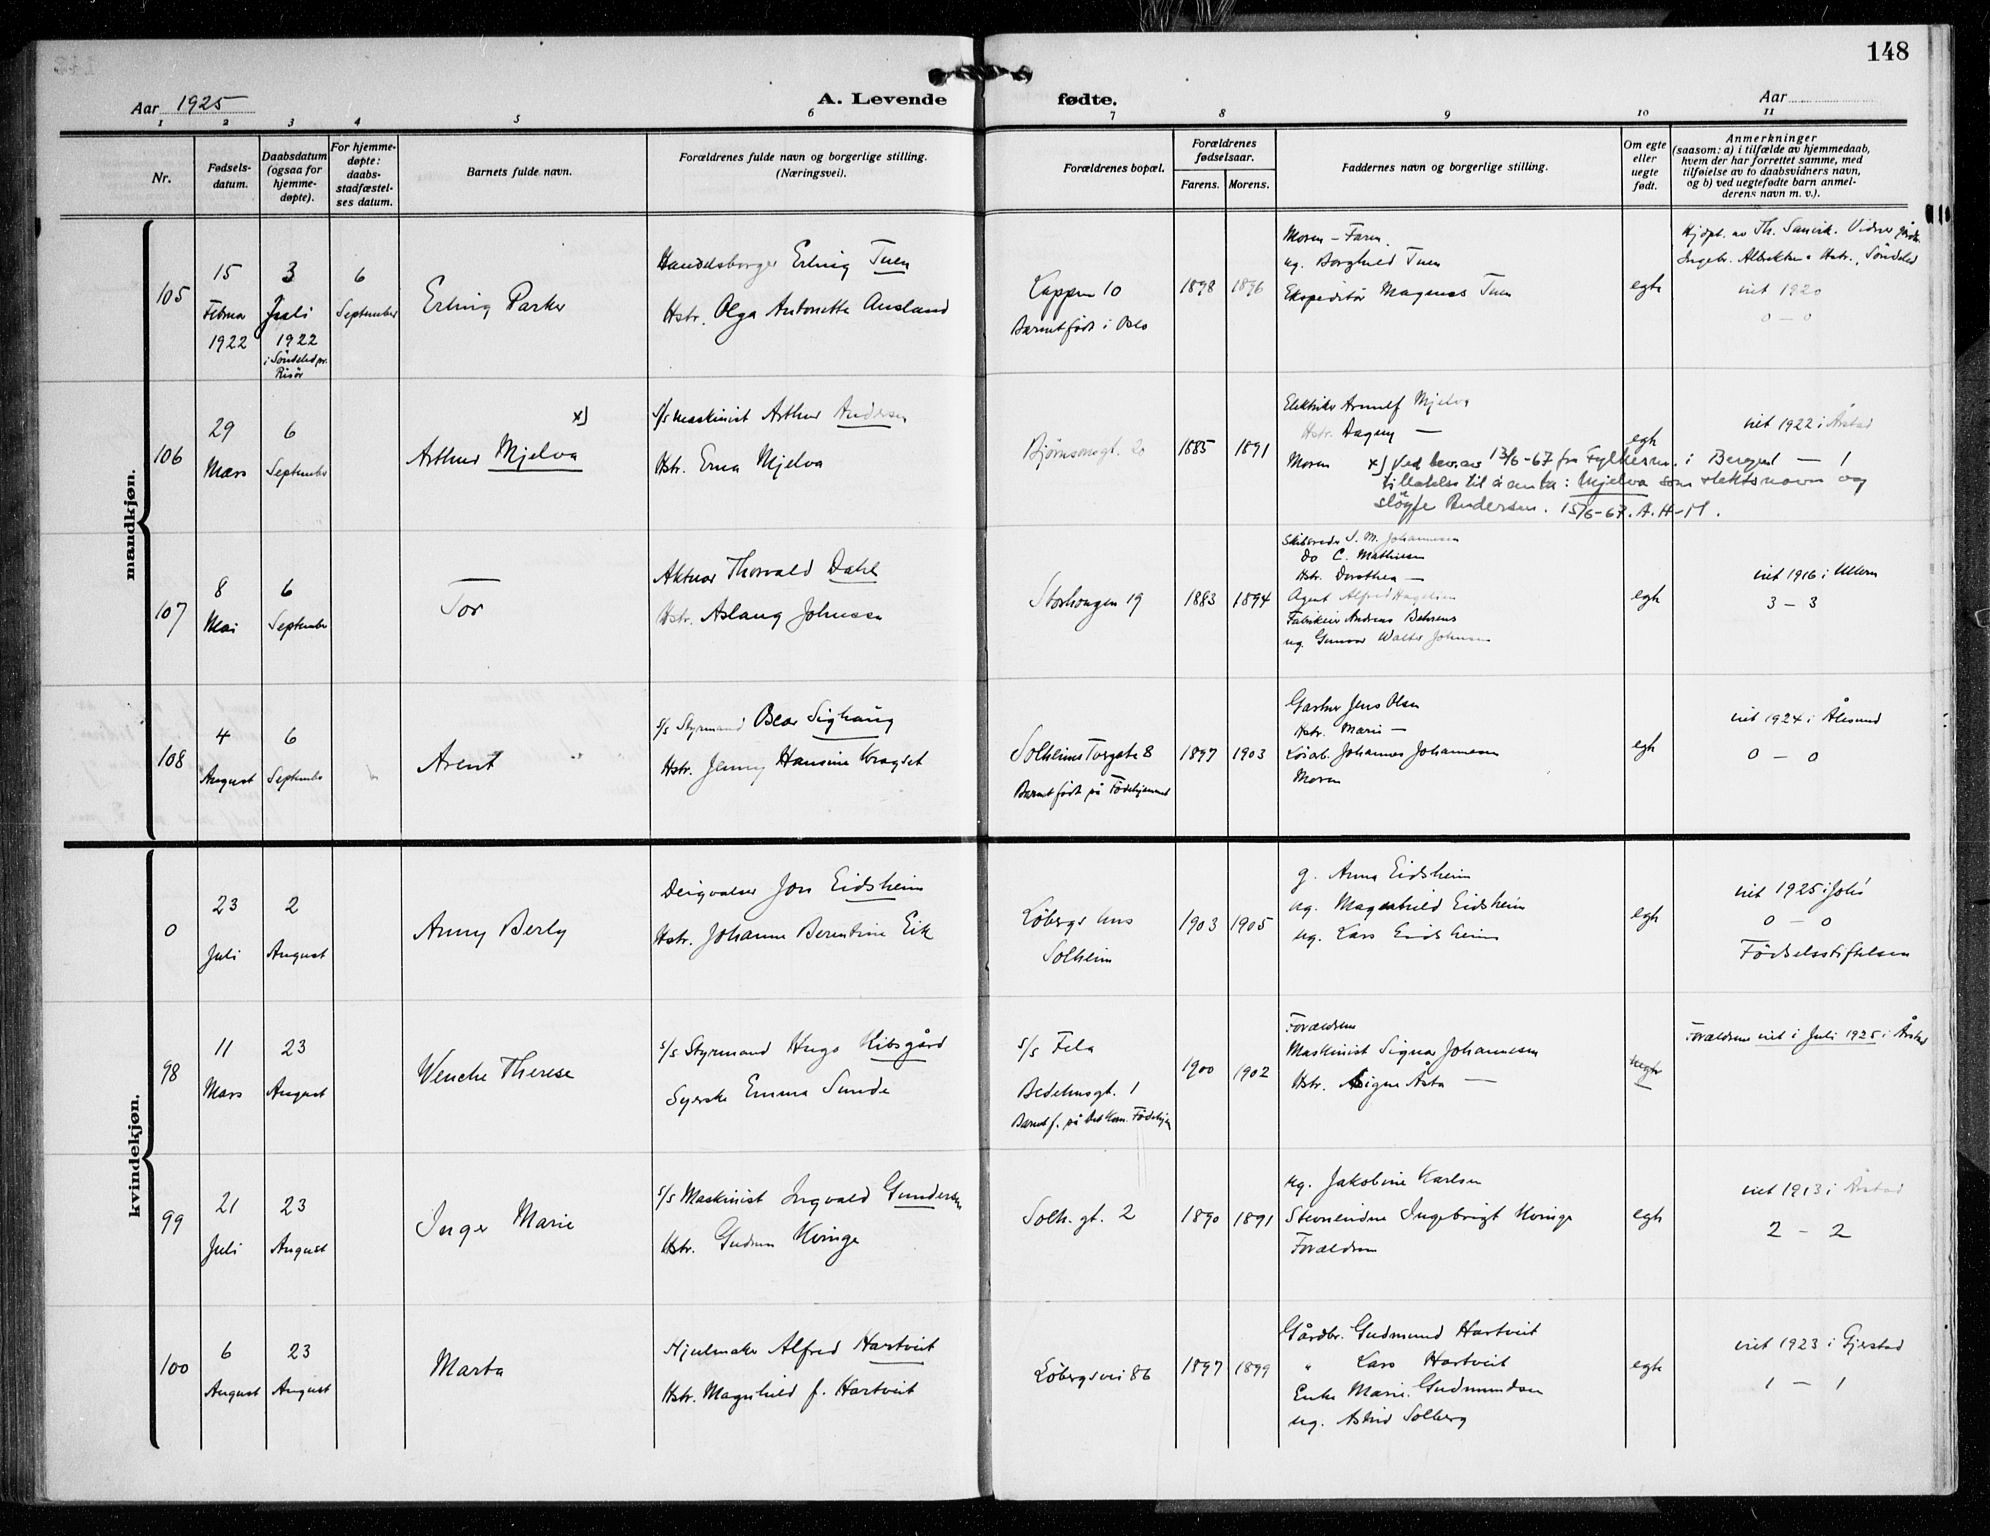 148
Aar 1925
A. Levende fødte.
Aar
1 2 3 4 5 6 7 8 9 10 11
Nr.
Fødsels-
datum.
Daabsdatum
(ogsaa for
hjemme-
døpte).
For hjemme-
døpte:
daabs-
stadfæstel-
ses datum.
Barnets fulde navn.
Forældrenes fulde navn og borgerlige stilling.
(Næringsvei).
Forældrenes bopæl.
Forældrenes
fødselsaar.
Farens. Morens.
Faddernes navn og borgerlige stilling.
Om egte
eller
uegte
født.
Anmerkninger
(saasom: a) i tilfælde av hjemmedaab,
hvem der har forrettet samme, med
tilføielse av to daabsvidners navn,
og b) ved uegtefødte barn anmel-
derens navn m. v.).
mandkjøn.
105
15
Februar
1922
3
Juli
1922
i Søndeled pr.
Risör
6
September
Erling Parker
Handelsborger Erling Tuen
Hstr. Olga Antonette Ausland
Kappen 10
Barnet født i Oslo
1898
1896
Moren - Faren
ug. Borghild Tuen
Ekspeditör Magnus Tuen
egte
Hjdpt. av Th. Sanvik. Vidner
viet 1920
0 - 0
106
29
Mars
6
September
Arthur Mjelva x)
s/s Maskinist Arthur Andersen
Hstr. Erna Mjelva
Bjørnsonsgt. 20
1885
1891
Elektriker Arnulf Mjelva
Hstr. Dagny —
Moren
x) Ved bevis av 13/6-67 fra Fylkesm. i Bergen
tillatelse til å anta: Mjelva som slektsnavn og
sløyfe Andersen. 15/6-67. A.H-M.
egte
viet 1922 i Årstad
— 1
107
8
Mai
6
September
Tor
Aktuar Thorvald Dahl
Hstr. Aslaug Johnsen
Storhaugen 19
1883
1894
Skibsreder S. M. Johannesen
Do C. Mathiesen
Hstr. Dorothea —
Agent Alfred Hagelien
Fabrikeier Andreas Behrens
ug. Gunvor Walter Johnsen
egte
viet 1916 i Ullern
3 - 3
108
4
August
6
September
Arent
s/s Styrmand Peder Sighaug
Hstr. Jenny Hansine Kragset
Solheims Torgate 8
Barnet født på Fødehjemmet
1897
1903
Gartner Jens Olsen
Hstr. Marie —
Løsarb. Johannes Johannesen
Moren
egte
viet 1924 i Ålesund
0 - 0
kvindekjøn.
0
23
Juli
2
August
Anny Berly
Jon Eidsheim
Hstr. Johanne Berntine Eik
Løbergs hus
Solheim
1903
1905
g. Anna Eidsheim
ug. Magnhild Eidsheim
ug. Lars Eidsheim
egte
viet 1925 i Joh's
0 - 0
Fødselsstiftelsen
98
11
Mars
23
August
Wenche Therese
s/s Styrmand Hugo Kibsgård
Syerske Emma Sunde
s/s Fela
Bedehusgt. 1
Barnet f. på Det Kom. Fødehjem
1900
1902
Forældrene
Maskinist Signar Johannesen
Hstr. Signe Asta —
uegte
Forældrene viet i Juli 1925 i Årstad
99
21
Juli
23
August
Inger Marie
s/s Maskinist Ingvald Gundersen
Hstr. Gudrun Kvinge
Solh. gt. 2
1890
1891
ug. Jakobine Karlsen
Ingebrigt Kvinge
Forældrene
egte
viet 1913 i Årstad
2 - 2
100
6
August
23
August
Marta
Hjulmaker Alfred Hartveit
Hstr. Magnhild f. Hartveit
Løbergsvei 86
1897
1899
Gårdbr. Gudmund Hartveit
" Lars Hartveit
Enke Marie Gudmundsen
ug. Astrid Solberg
egte
viet 1923 i Gjerstad
1 - 1